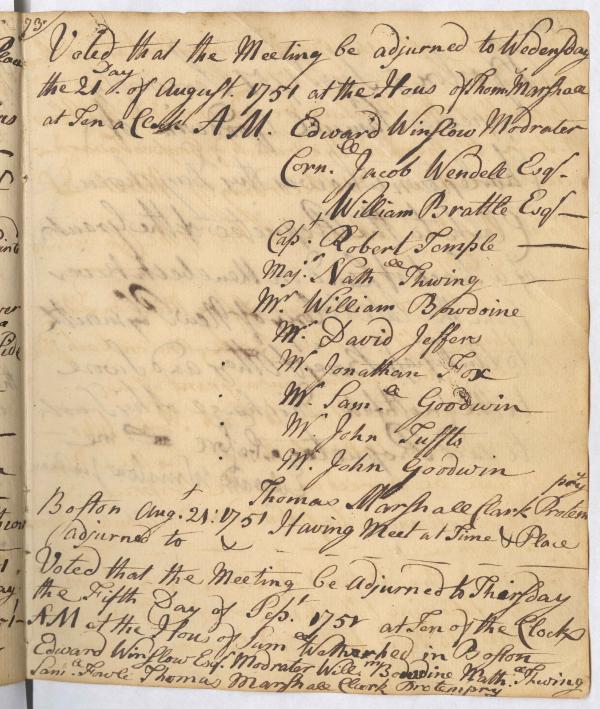 73
Voted that the Meeting be adjurned to Wedensday
the 21 Day of August. 1751 at the Hous of Thom.s Marshall
at Ten a Clock A M. Edward Winslow Modrater
Corn.ll Jacob Wendell Esqr
William Brattle Esqr
Capt. Robert Temple
Majr. Nath.ell Thwing
Mr. William Bowdoine
Mr. David Jeffers
Mr. Jonathan Fox
Mr. Sam.ll Goodwin
Mr. John Tuffts
Mr. John Goodwin
Thomas Marshall Clark Protempry
Boston Augt. 21: 1751 Having Meet at Time & Place
adjurned to
Voted that the Meeting be Adjurned to Thirsday
the Fifth Day of Sept. 1751 at Ten of the Clock
A M at the Hous of Sam.ll Watherhed in Boston
Edward Winslow Esqr. Modrater Will.m Bowdine Nath.ll Thwing
Sam.ll Fowle Thomas Marshall Clark Protempry